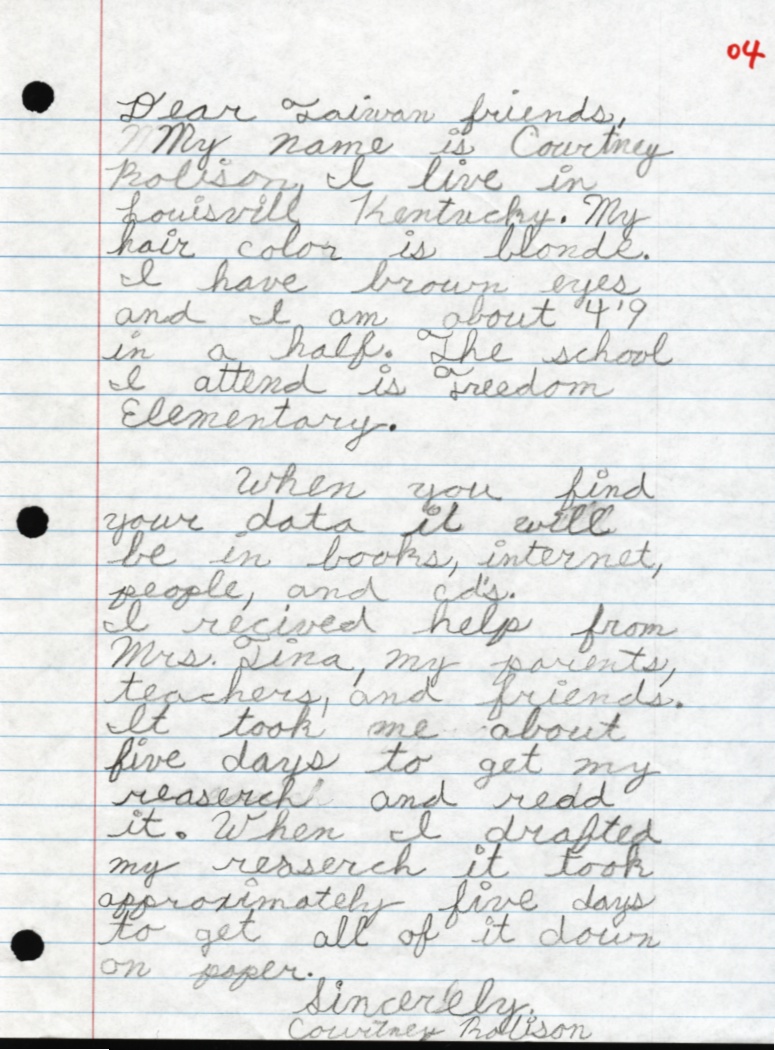 04
Dear Taiwan friends,
My name is Courtney
Robison, I live in
Louisvill Kentucky. My
hair color is blonde.
I have brown eyes
and I am about 4'9
in a half. The school
I attend is Freedom
Elementary.
When you find
your data it will
be in books, internet,
people, and cd's.
I recived help from
Mrs. Tina, my parents,
teachers, and friends.
It took me about
five days to get my
reaserch and read
it. When I drafted
my reaserch it took
approximately five days
to get all of it down
on paper.
Sincerely,
Courtney Robison